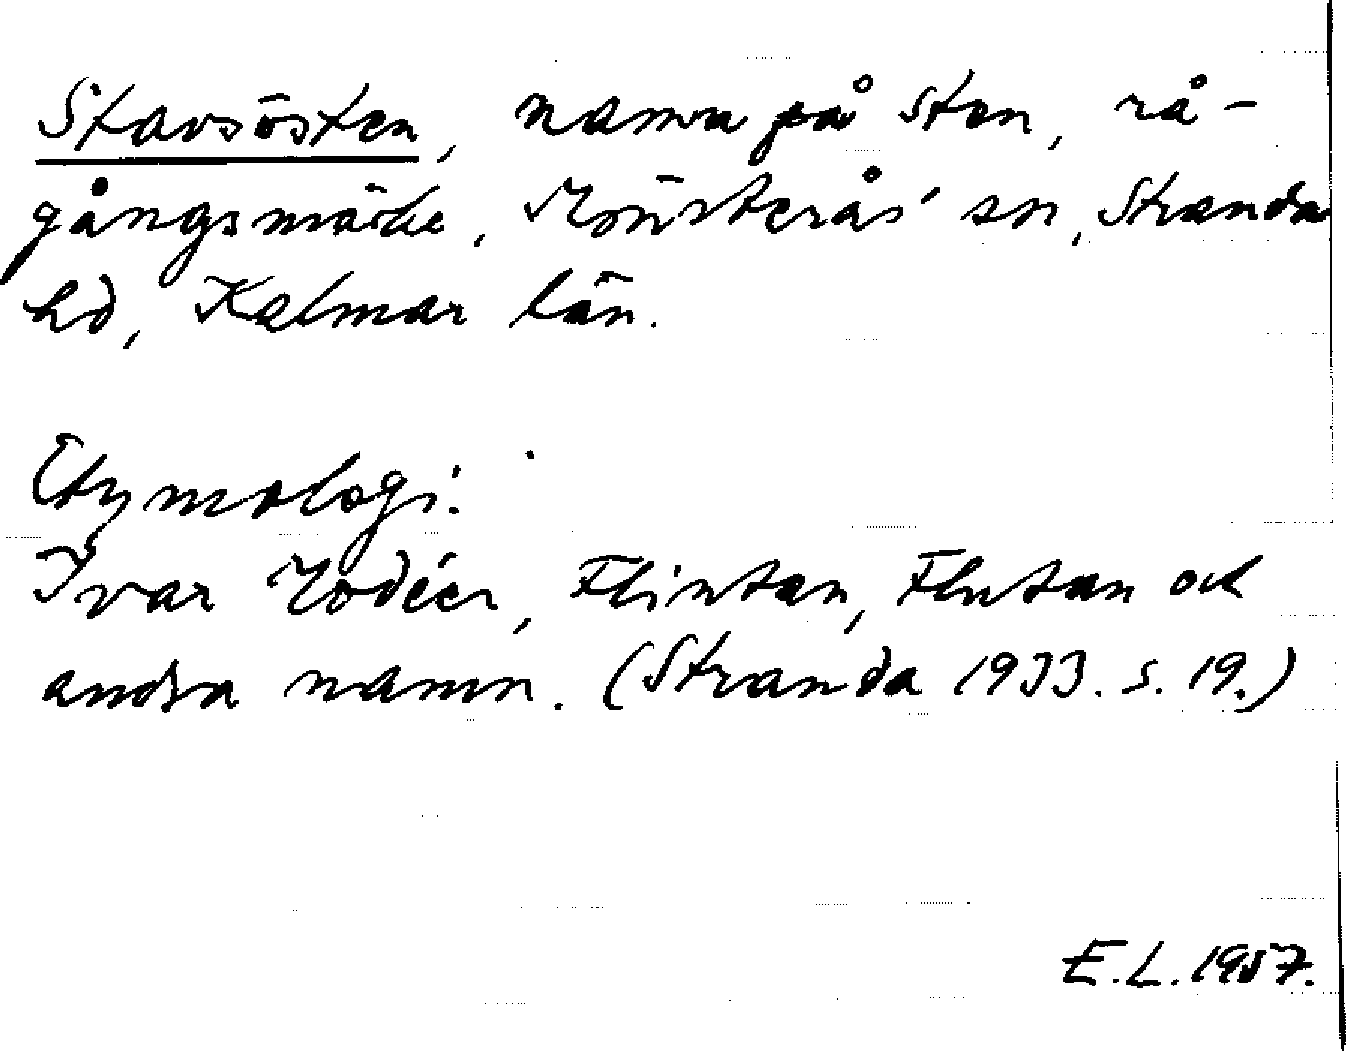 Stavsösten, namn på sten, rå-
gångsmärke, Mönsterås sn, Stranda
hd, Kalmar län.
Etymologi:
Ivar Modéer, Flintan, Flutan och
andra namn. (Stranda 1933. s. 19.)
E.L. 1957.